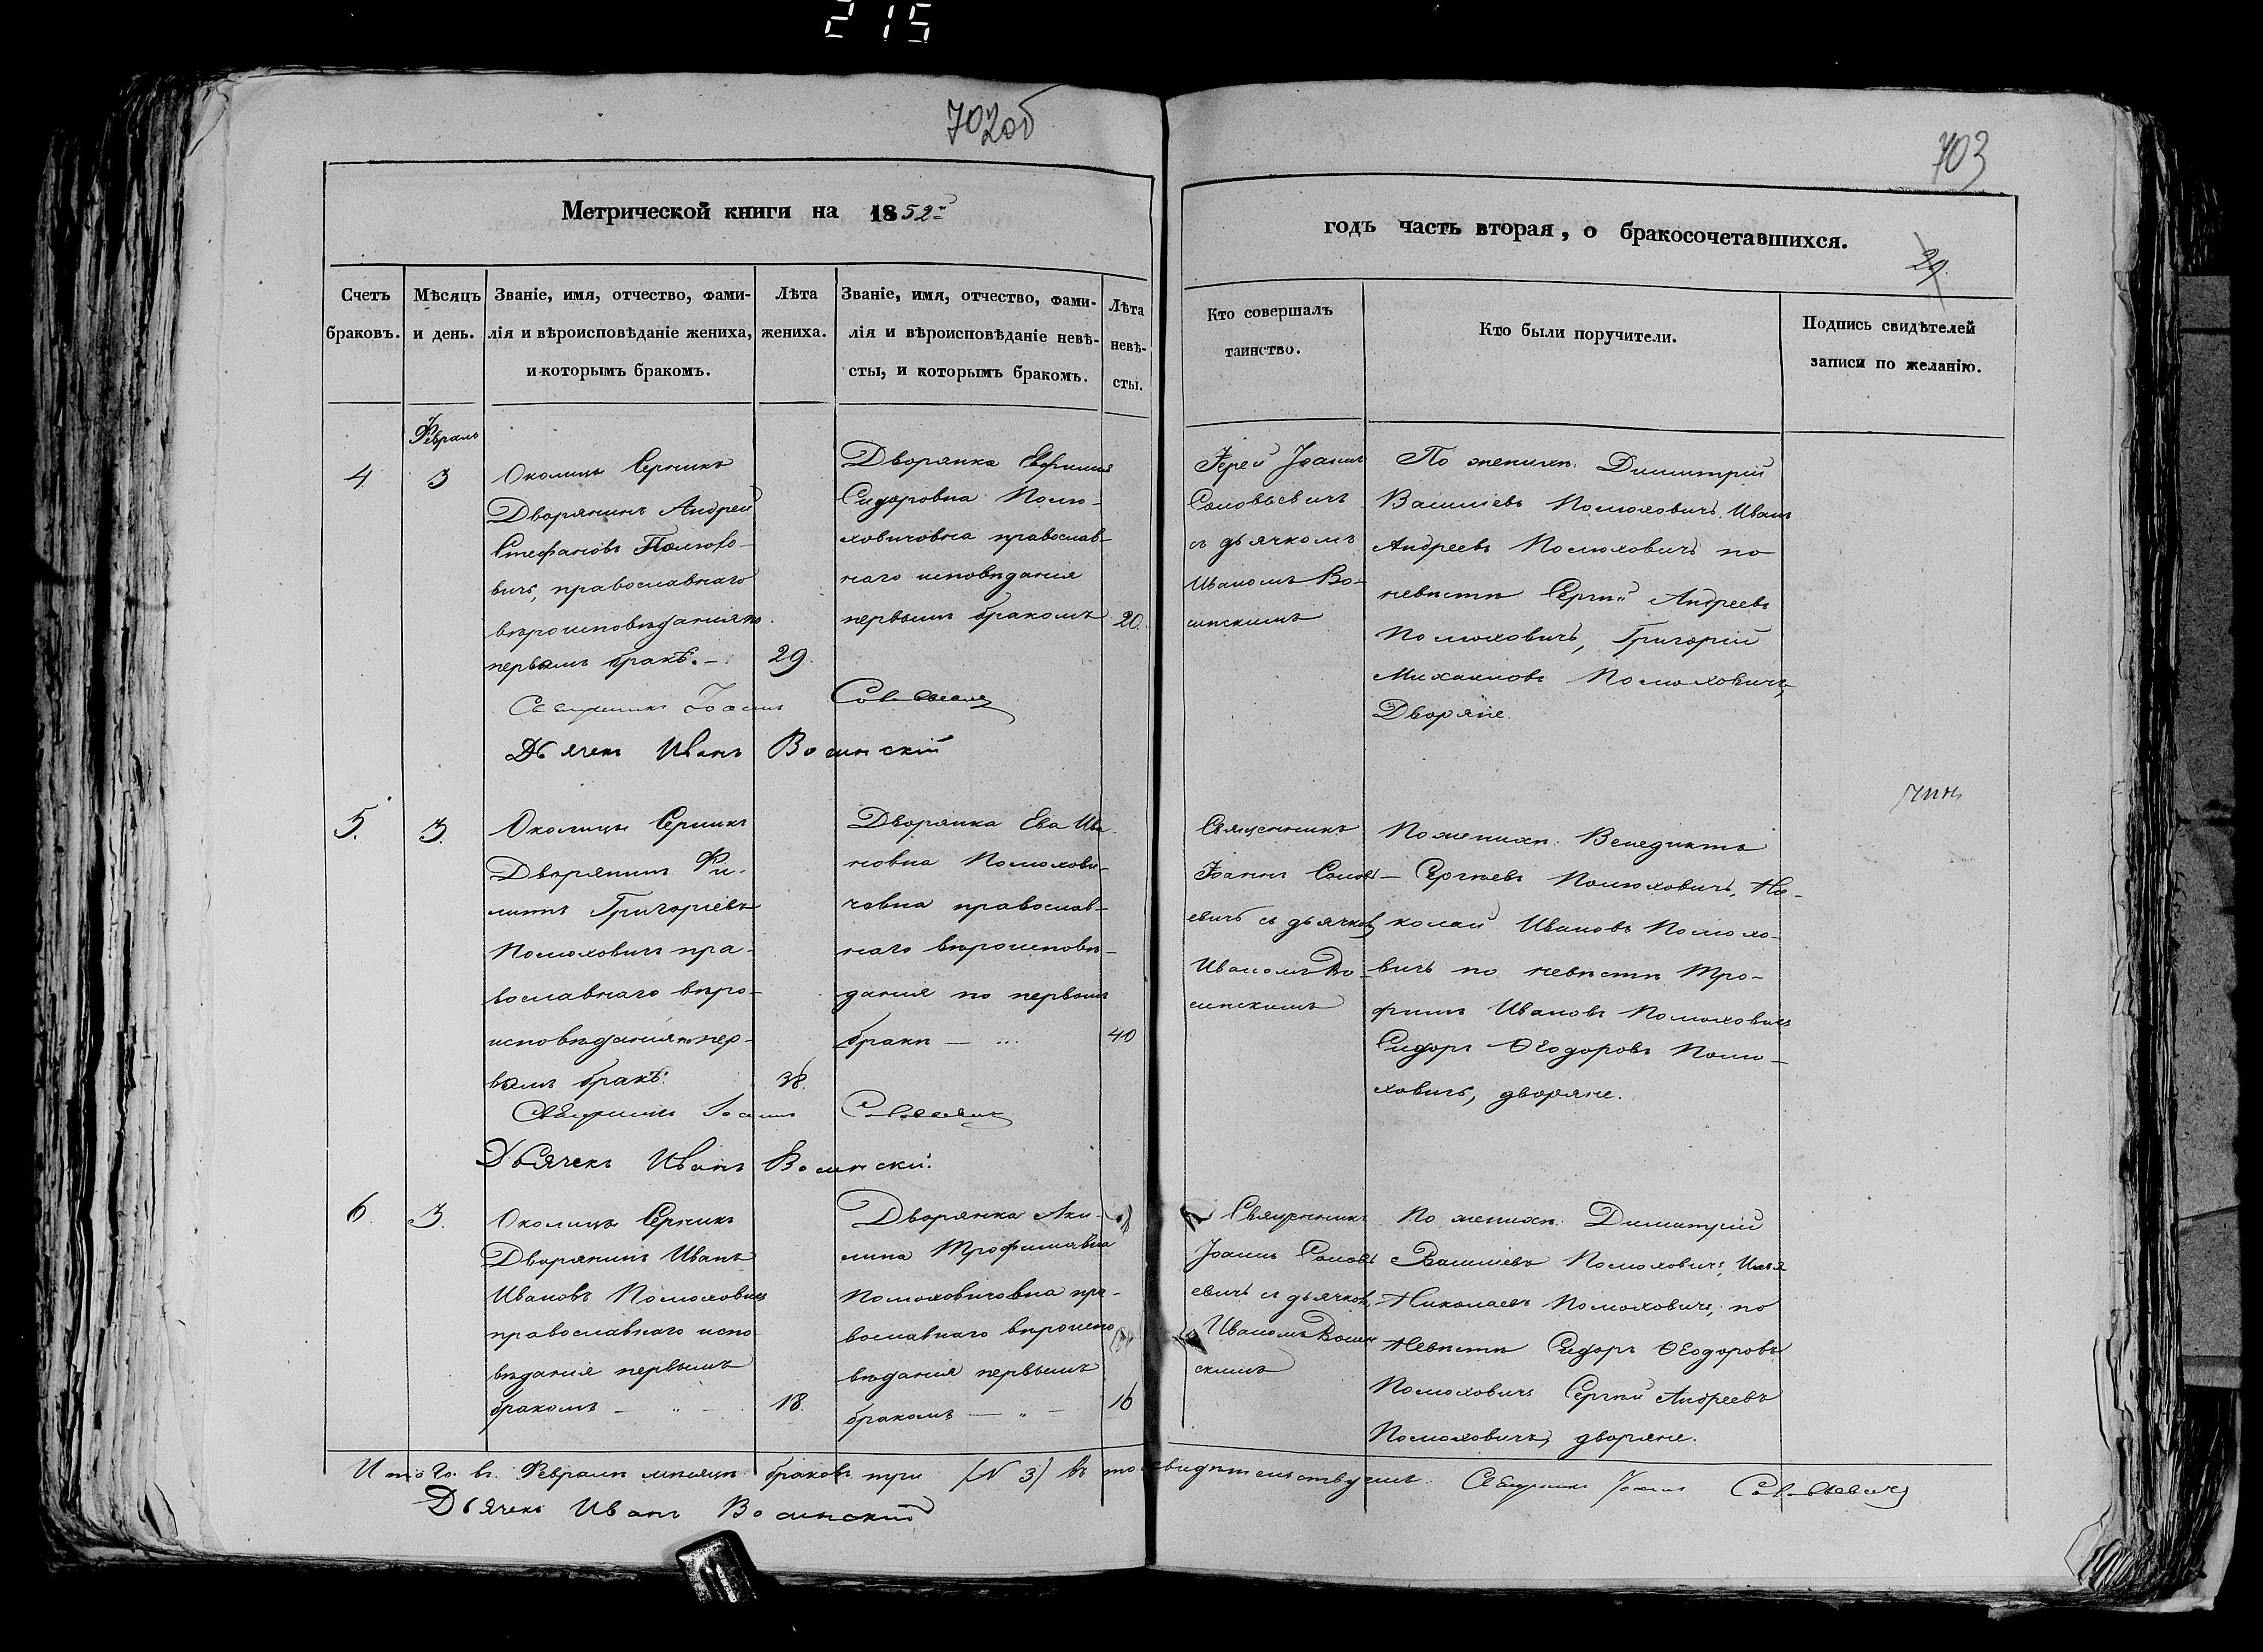 215
702об
703
Метрической книги на 1852й
годъ часть вторая, о бракосочетавшихся.
29.
Счетъ
браковъ.
Мѣсяцъ
и день.
Званіе, имя, отчество, фами-
лія и вѣроисповѣданіе жениха,
и которымъ бракомъ.
Лѣта
жениха.
Званіе, имя, отчество, фами-
лія и вѣроисповѣданіе невѣ-
сты, и которымъ бракомъ.
Лѣта
невѣ-
сты.
Кто совершалъ
таинство.
Кто были поручители.
Подпись свидѣтелей
записи по желанію.
Февраль
4.
3
Околицы Серникъ
Дворянинъ Андрей
Стефановъ Полюхо-
вичъ, православнаго
вѣроисповѣданія по
первомъ бракѣ. —
29.
Дворянка Евфимія
Сидоровна Полю-
ховичовна православ-
наго исповѣданія
первымъ бракомъ
20.
Іерей Іоаннъ
Соловьевичъ
съ дьячкомъ
Иваномъ Во-
линскимъ
По женихѣ: Димитрій
Василіевъ Полюховичъ. Иванъ
Андреевъ Полюховичъ по
невѣстѣ Сергѣй Андреевъ
Полюховичъ, Григорій
Михаиловъ Полюховичъ,
Дворяне.
Священникъ Іоаннъ Соловьевичъ
Дьячекъ Иванъ Волинскій
5.
3.
Околицы Серникъ
Дворянинъ Фи-
липпъ Григоріевъ
Полюховичъ пра-
вославнаго вѣро-
исповѣданія по пер-
вомъ бракѣ.
38.
Дворянка Ева Ива-
новна Полюхови-
човна православ-
наго вѣроисповѣ-
данія по первомъ
бракѣ —
40
Священникъ
Іоаннъ Соловь-
евичъ съ дьячкомъ
Иваномъ Во-
линскимъ
По женихѣ: Венедиктъ
Сергѣевъ Полюховичъ, Ни-
колай Ивановъ Полюхо-
вичъ по невѣстѣ Тро-
фимъ Ивановъ Полюховичъ
Сидоръ Ѳеодоровъ Полю-
ховичъ, дворяне.
Священникъ Іоаннъ Соловьевичъ
Дьячекъ Иванъ Волинскій.
6.
3.
Околицы Серникъ
Дворянинъ Иванъ
Ивановъ Полюховичъ
православнаго испо
вѣданія первымъ
бракомъ — „ —
18.
Дворянка Аки-
лина Трофимовна
Полюховичовна пра-
вославнаго вѣроиспо
вѣданія первымъ
бракомъ — „ —
16
Священникъ
Іоаннъ Соловь
евичъ съ дьячкомъ
Иваномъ Волин
скимъ
По женихѣ: Димитрій
Василіевъ Полюховичъ, Илья
Николаевъ Полюховичъ, по
невѣстѣ Сидоръ Ѳеодоровъ
Полюховичъ Сергѣй Андреевъ
Полюховичъ, дворяне.
Итого въ Февралѣ мѣсяцѣ браковъ три (N 3) въ томъ свидѣтельствуемъ. Священникъ Іоаннъ Соловьевичъ
Дьячекъ Иванъ Волинскій